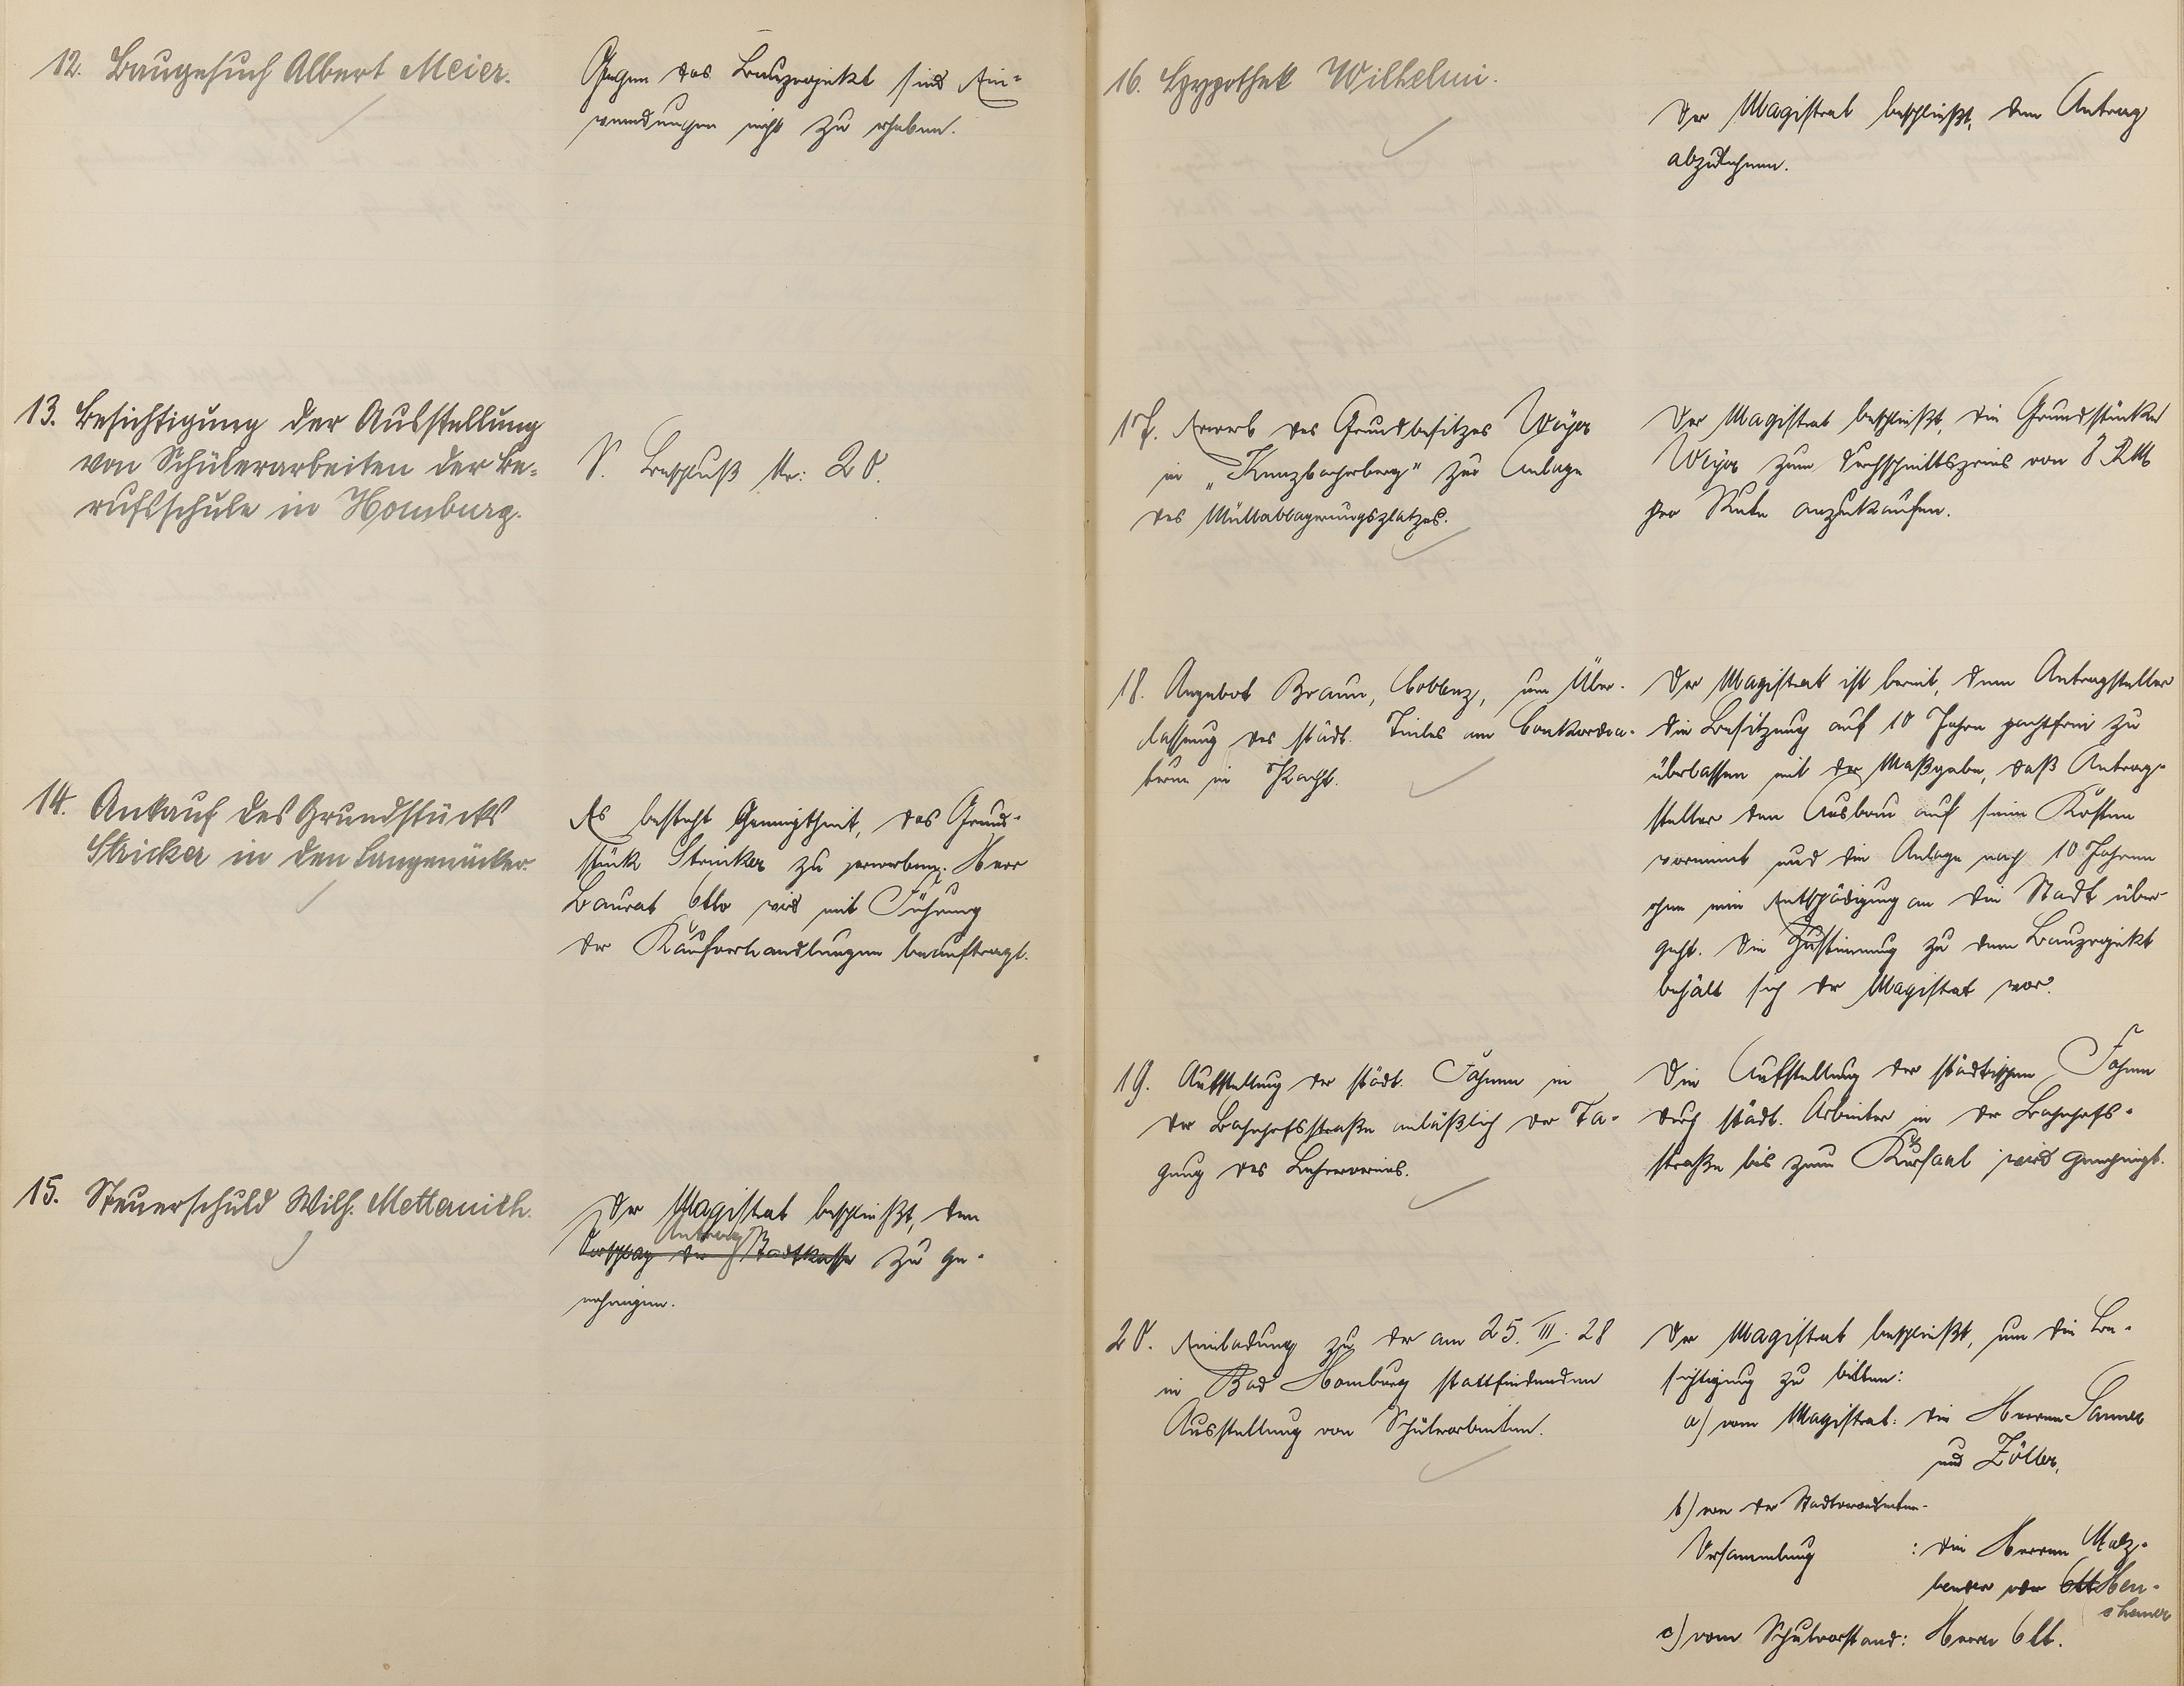 12. Baugesuch Albert Meier.
Gegen das Bauprojekt sind Ein-
wendungen nicht zu erheben.
13. Besichtigung der Ausstellung
von Schülerarbeiten der Be-
rufsschule in Homburg.
S. Beschluß Nr: 20.
14. Ankauf des Grundstücks
Stricker in den Langenäcker.
Es besteht Geneigtheit, das Grund-
stück Stricker zu erwerben. Herr
Baurat Otto wird mit Führung
der Kaufverhandlungen beauftragt.
15. Steuerschuld Wilh. Metternich.
Der Magistrat beschließt, den
Antrag
Vorschlag der Stadtkasse zu ge-
nehmigen.
16. Hypothek Wilhelmi.
Der Magistrat beschließt, den Antrag
abzulehnen.
17. Erwerb des Grundbesitzes Weyer
in zur Anlage
des Müllablagerungsplatzes.
Der Magistrat beschließt, die Grundstücke
Weyer zum Durchschnittspreis von 8 RM
pro Rute anzukaufen.
18. Angebot Braun, Coblenz, um Über-
lassung des städt. Teiles am Conkordia-
turm in Pacht.
Der Magistrat ist bereit, dem Antragsteller
die Besitzung auf 10 Jahre pachtfrei zu
überlassen mit der Maßgabe, daß Antrag-
steller den Ausbau auf seine Kosten
vornimmt und die Anlage nach 10 Jahren
ohne eine Entschädigung an die Stadt über-
geht. Die Zustimmung zu dem Bauprojekt
behält sich der Magistrat vor.
19. Aufstellung der städt. Fahnen in
der Bahnhofsstraße anläßlich der Ta-
gung des Lehrervereins.
Die Aufstellung der städtischen Fahnen
durch städt. Arbeiter in der Bahnhofs-
straße bis zum Kursaal wird genehmigt.
20. Einladung zu der am 25. III. 28
in Bad Homburg stattfindenden
Ausstellung von Schülerarbeiten.
Der Magistrat beschließt, um die Be-
sichtigung zu bitten:
a) vom Magistrat: die Herren Sanner
und Zöller,
b) von der Stadtverordneten-
Versammlung : die Herren Malz-
bender oder Ott Hen-
c) vom Schulvorstand: Herrn Ott.